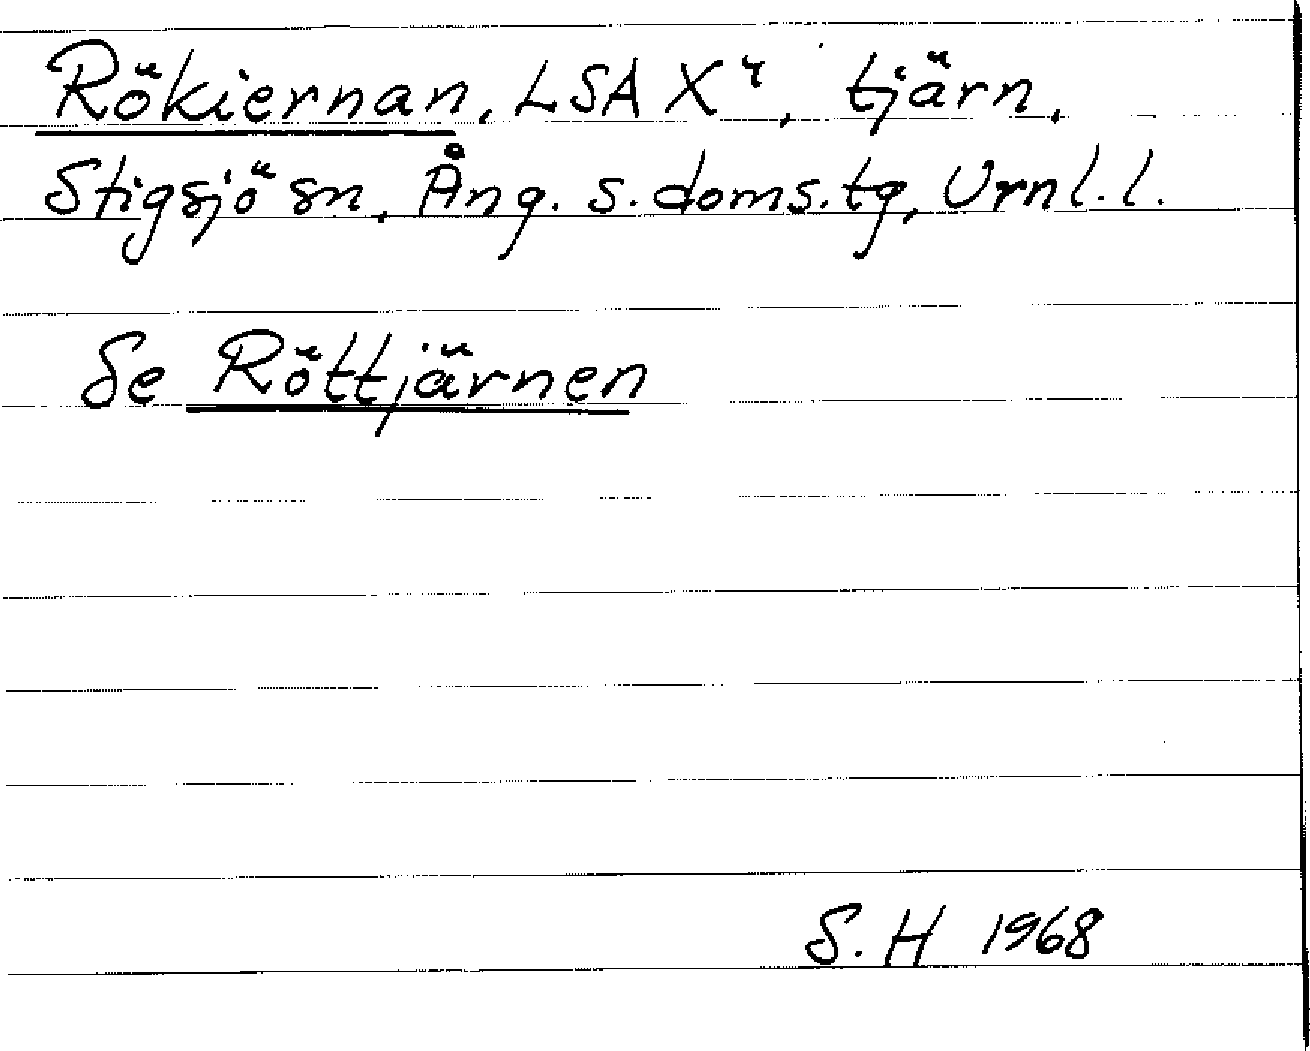 Rökiernan, LSA X⁴, tjärn,
Stigsjö sn, Ång. s. doms.tg, Vrnl.l.
Se Röttjärnen
S. H 1968